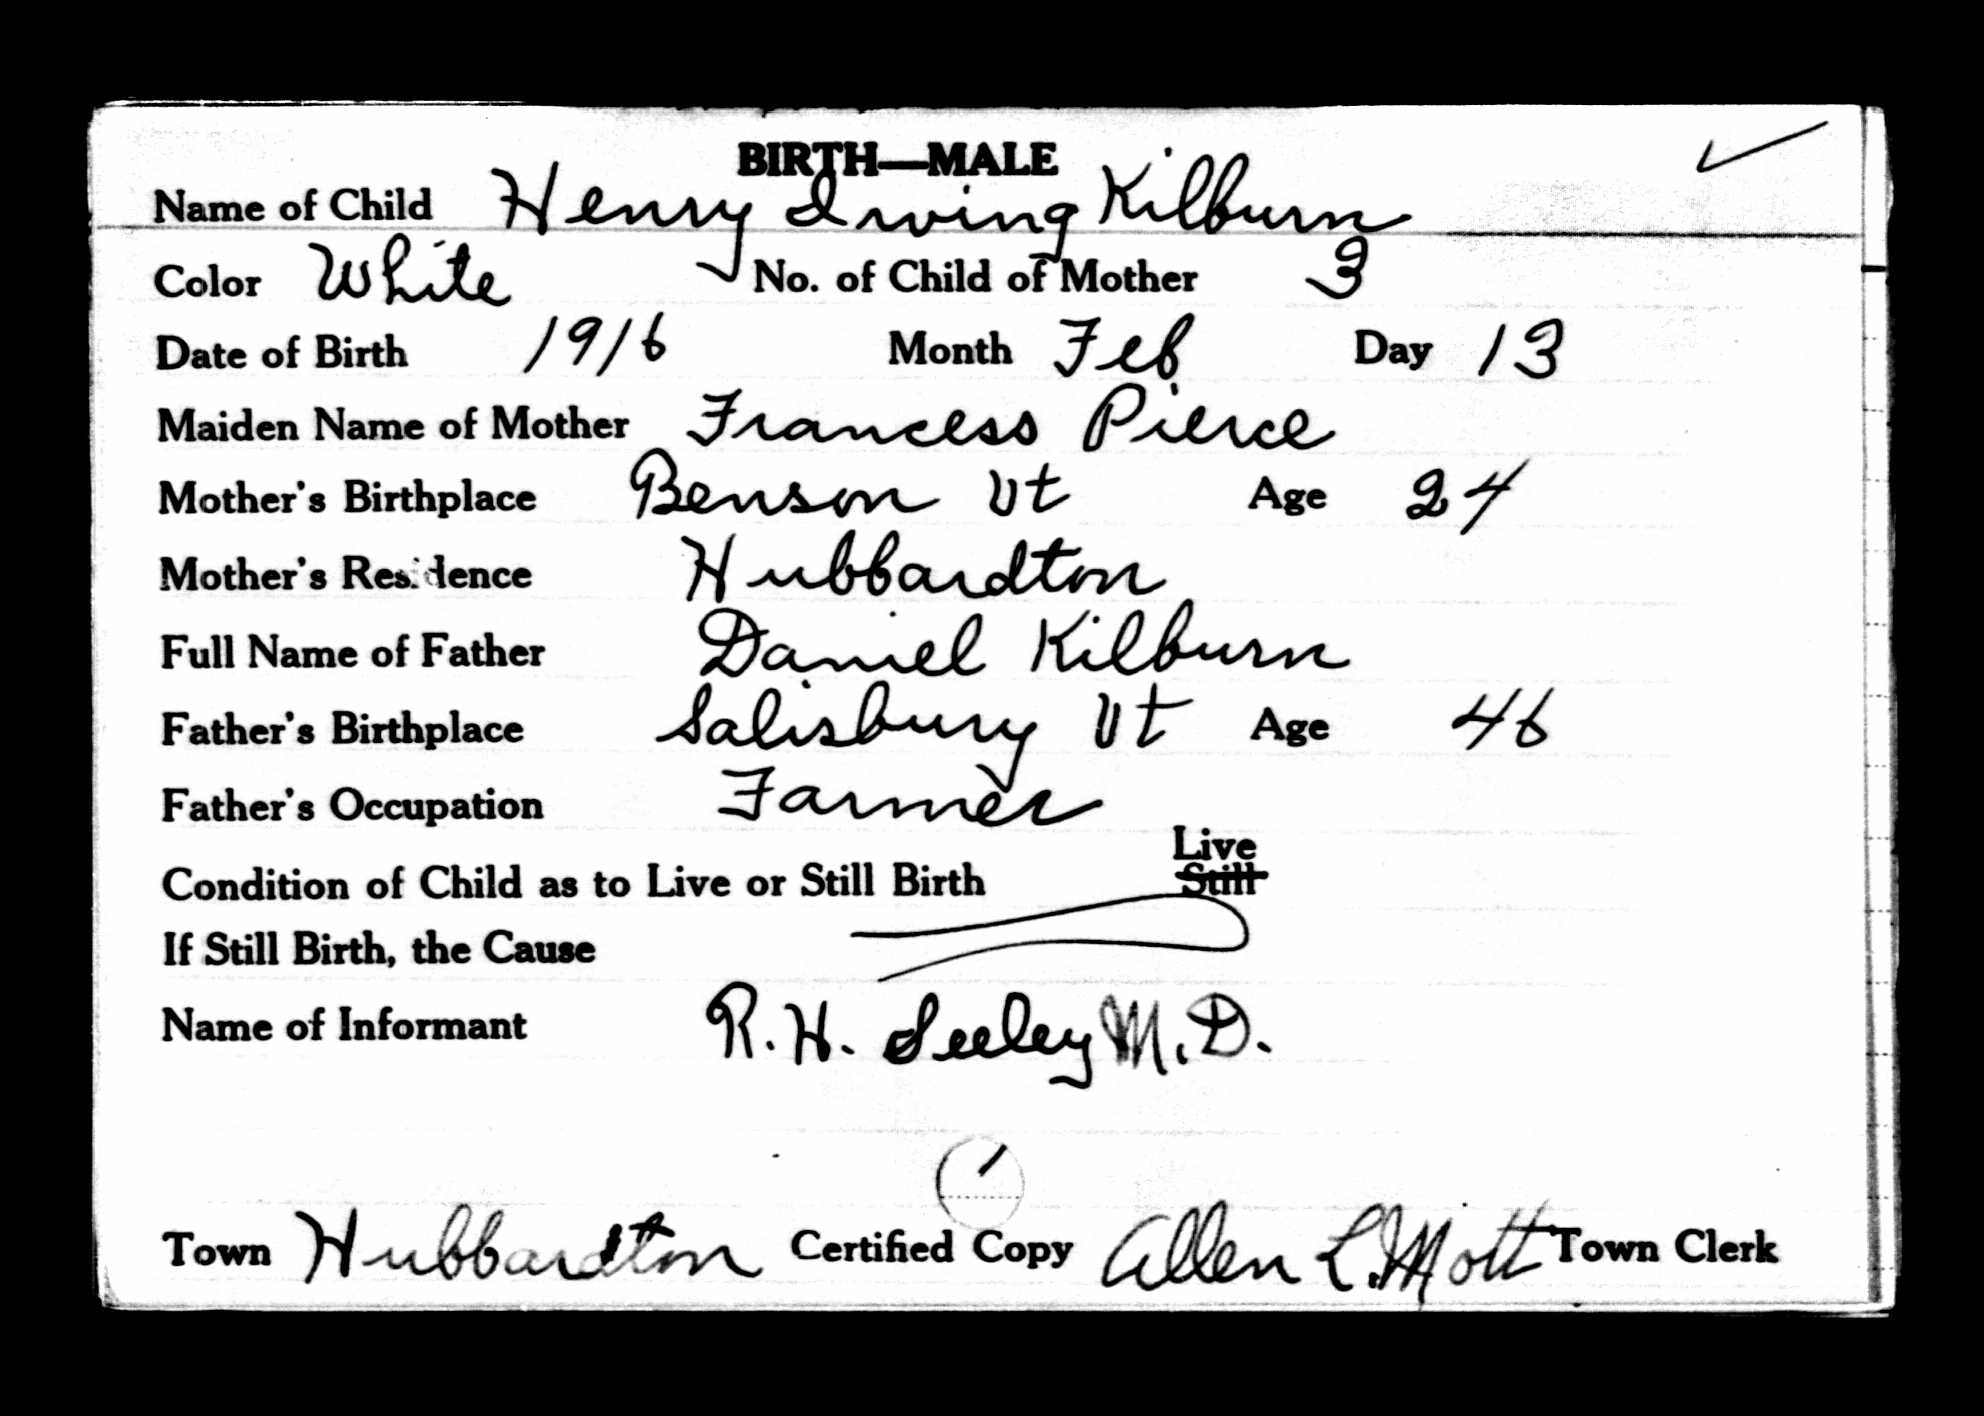 BIRTH—MALE
Name of Child Henry Irving Kilburn
Color White No. of Child of Mother 3
Date of Birth 1916 Month Feb Day 13
Maiden Name of Mother Francess Pierce
Mother's Birthplace Benson Vt Age 24
Mother's Residence Hubbardton
Full Name of Father Daniel Kilburn
Father's Birthplace Salisbury Vt Age 46
Father's Occupation Farmer
Live
Condition of Child as to Live or Still Birth Still
If Still Birth, the Cause
Name of Informant R. H. Seeley M. D.
Town Hubbardton Certified Copy Allen L. Mott Town Clerk